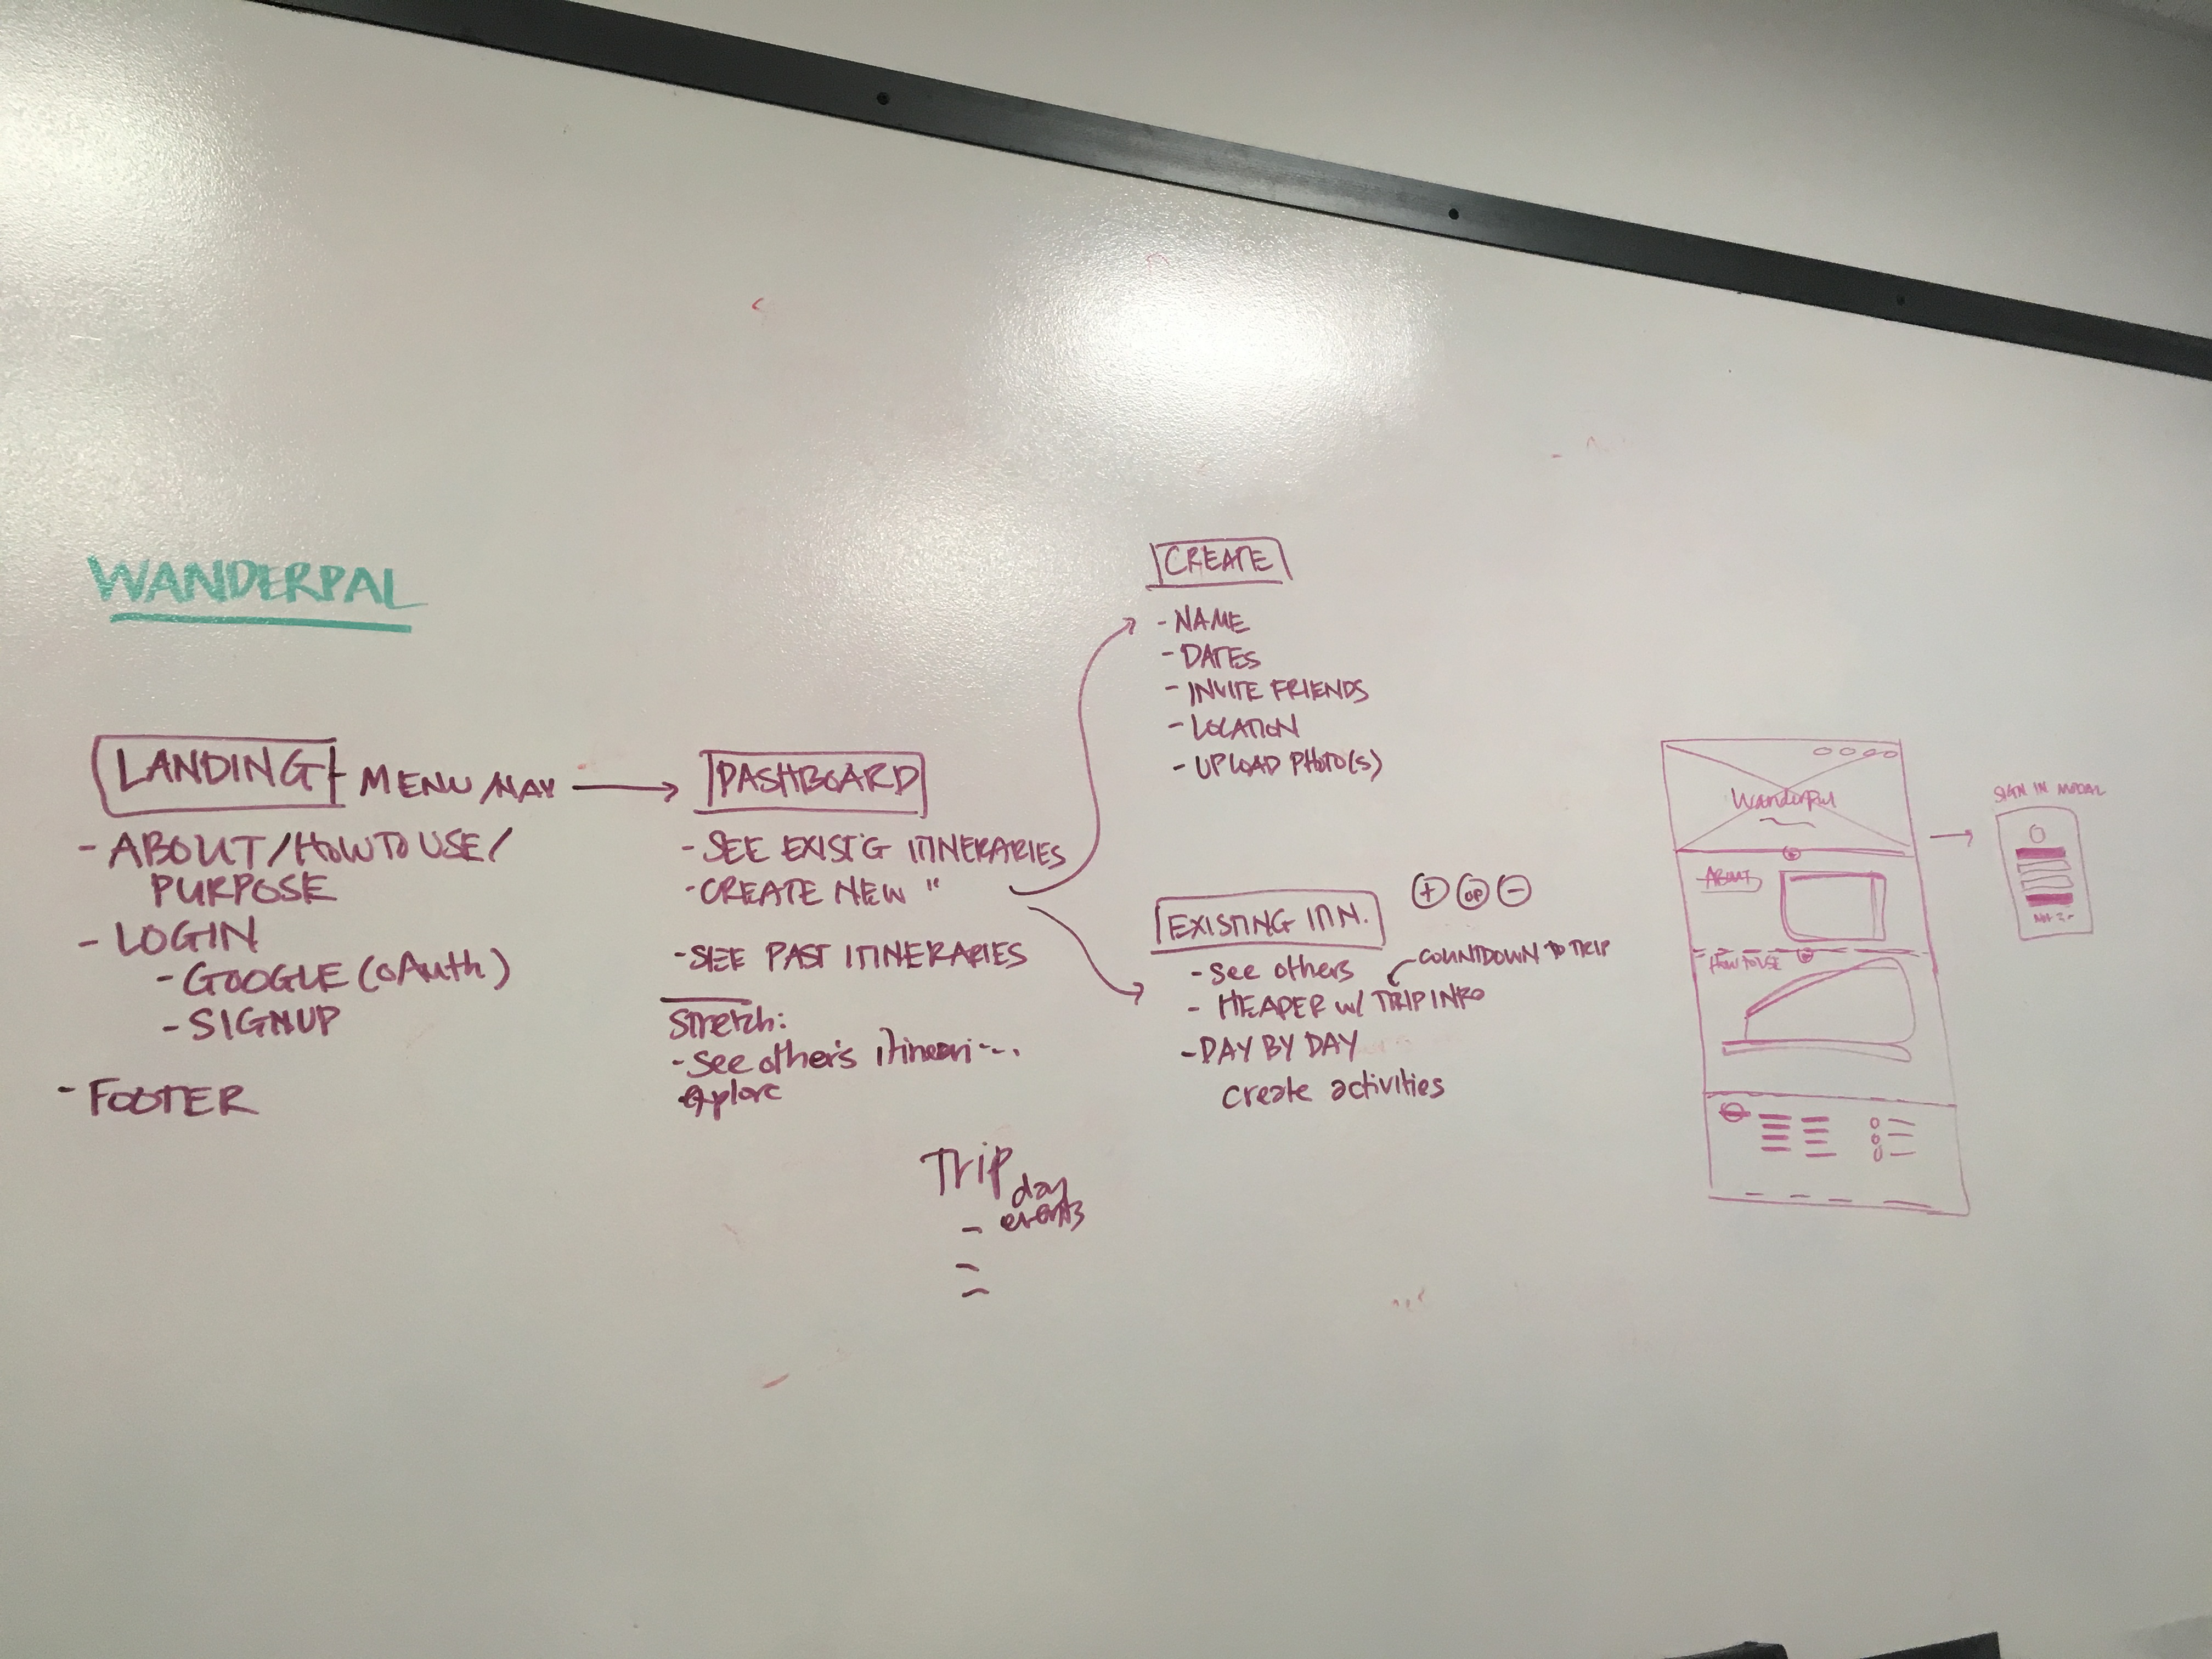 WANDERPAL
LANDING
MENU/NAV
- ABOUT/HOW TO USE/
PURPOSE
- LOGIN
- GOOGLE (OAuth)
- SIGNUP
- FOOTER
DASHBOARD
- SEE EXIST'G ITINERARIES
- CREATE NEW "
- SEE PAST ITINERARIES
Stretch:
- See other's itineari---.
explore
Trip
day
- events
-
-
CREATE
- NAME
- DATES
- INVITE FRIENDS
- LOCATION
- UPLOAD PHOTO(S)
EXISTING ITIN.
+ UP -
- See others
COUNTDOWN TO TRIP
- HEADER W/ TRIP INFO
- DAY BY DAY
Create activities
Wanderpal
ABOUT
HOW TO USE
SIGN IN MODAL